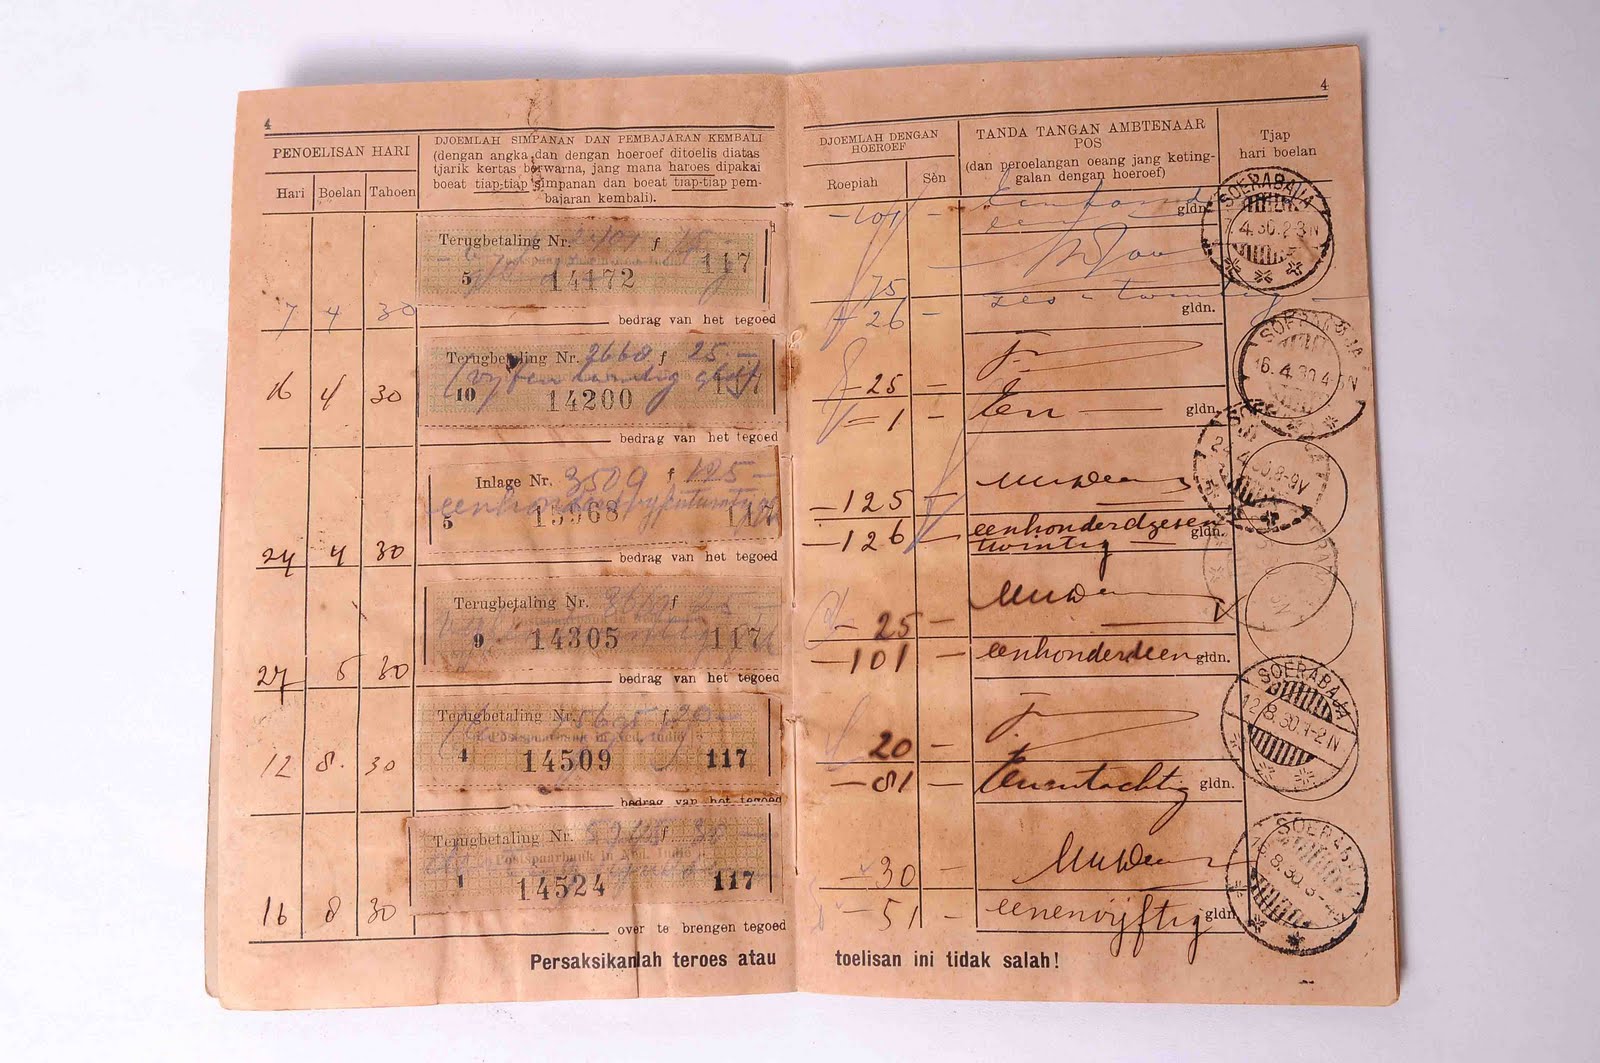 4
PENOELISAN HARI
Hari Boelan Tahoen
DJOEMLAH SIMPANAN DAN PEMBAJARAN KEMBALI
(dengan angka dan dengan hoeroef ditoelis diatas
tjarik kertas berwarna, jang mana haroes dipakai
boeat tiap-tiap simpanan dan boeat tiap-tiap pem-
bajaran kembali).
Terugbetaling Nr. f
5 14172 117
7 4 30
bedrag van het tegoed
Terugbetaling Nr. 2668 f 25.—
10 14200 117
16 4 30
bedrag van het tegoed
Inlage Nr. 3509 f 125 —
eenhonderdvijfentwintig
5 117
24 4 30
bedrag van het tegoed
Terugbetaling Nr. f 25 —
9 14305 117
27 5 30
bedrag van het tegoed
Terugbetaling Nr. 5605 f 20 —
Postspaarbank in Ned. Indië
4 14509 117
12 8. 30
bedrag van het tegoed
Terugbetaling Nr. f 30 —
Postspaarbank in Ned. Indië
1 14524 117
16 8 30
over te brengen tegoed
Persaksikanlah teroes atau
4
DJOEMLAH DENGAN
HOEROEF
Roepiah Sèn
TANDA TANGAN AMBTENAAR
POS
(dan peroelangan oeang jang keting-
galan dengan hoeroef)
Tjap
hari boelan
— 101 — gldn.
SOERABAJA
75
26 — zes-twintig gldn.
SOERABAJA
16.4.30.4-5N
— 25 —
1 — Een — gldn.
— 125 —
— 126 — eenhonderdzesen
twintig gldn.
— 25 —
— 101 — eenhonderdeen gldn.
SOERABAJA
12.8.30.1-2N
20 —
— 81 — Eenentachtig gldn.
SOERABAJA
— 30 —
— 51 — eenenvijftig gldn
toelisan ini tidak salah!